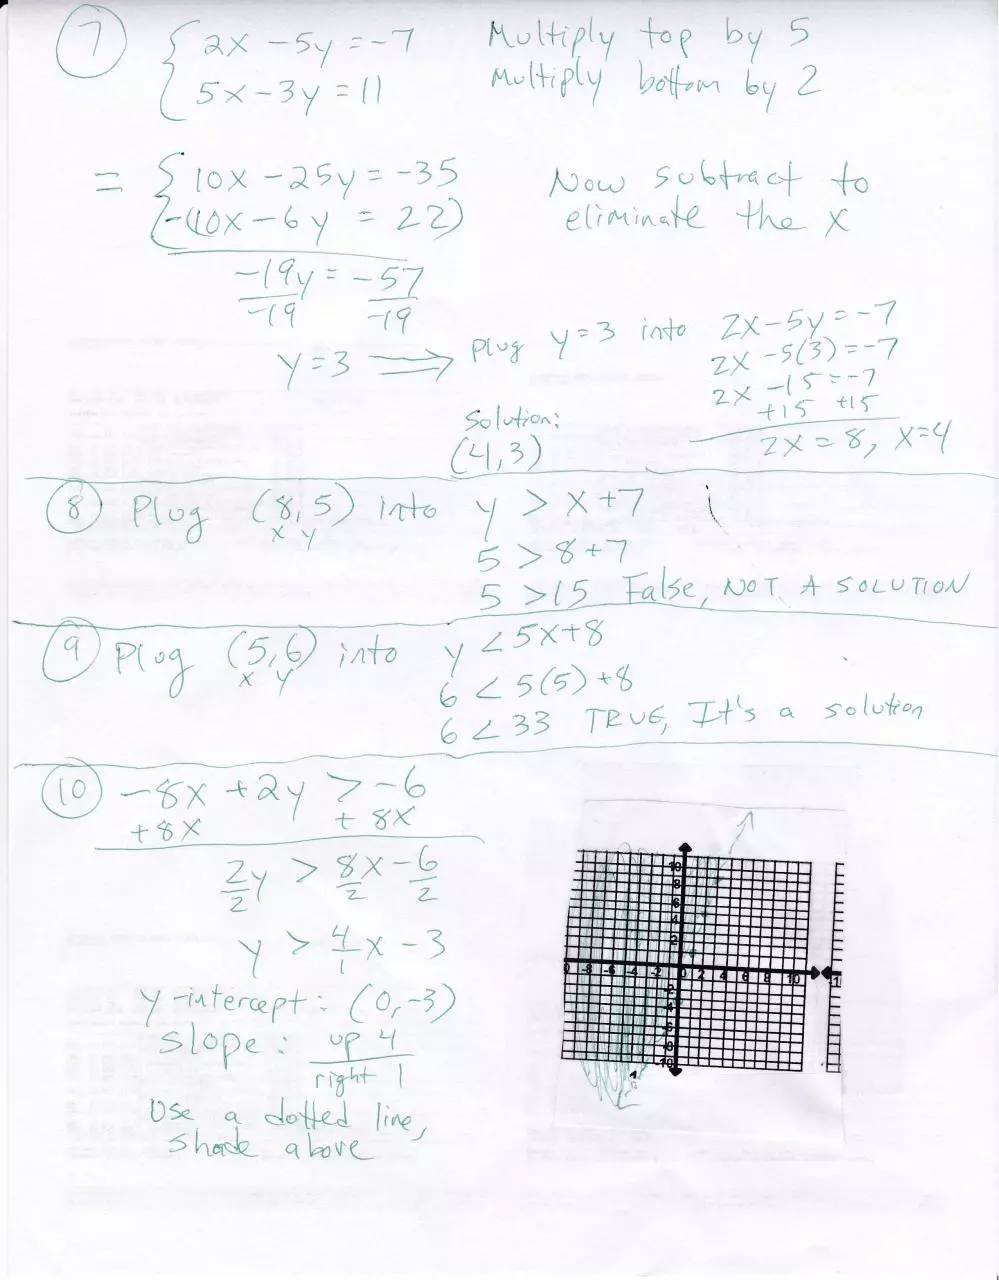 7 2x - 5y = -7 Multiply top by 5
5x - 3y = 11 Multiply bottom by 2
= 10x - 25y = -35 Now subtract to
-(10x - 6y = 22) eliminate the x
-19y = -57
-19 -19
y = 3 → Plug y=3 into 2x - 5y = -7
2x - 5(3) = -7
2x - 15 = -7
+15 +15
2x = 8, x=4
Solution:
(4,3)
8 Plug (8,5) into y > x + 7
x y
5 > 8 + 7
5 > 15 False, NOT A SOLUTION
9 Plug (5,6) into y < 5x + 8
x y
6 < 5(5) + 8
6 < 33 TRUE, It's a solution
10 -8x + 2y > -6
+8x + 8x
2y > 8x - 6
2 2 2
y > 4x - 3
1
y-intercept: (0,-3)
slope: up 4
right 1
Use a dotted line,
shade above
10
8
6
4
2
0 -8 -6 -4 -2 0 2 4 6 8 10
-2
-4
-6
-8
-10